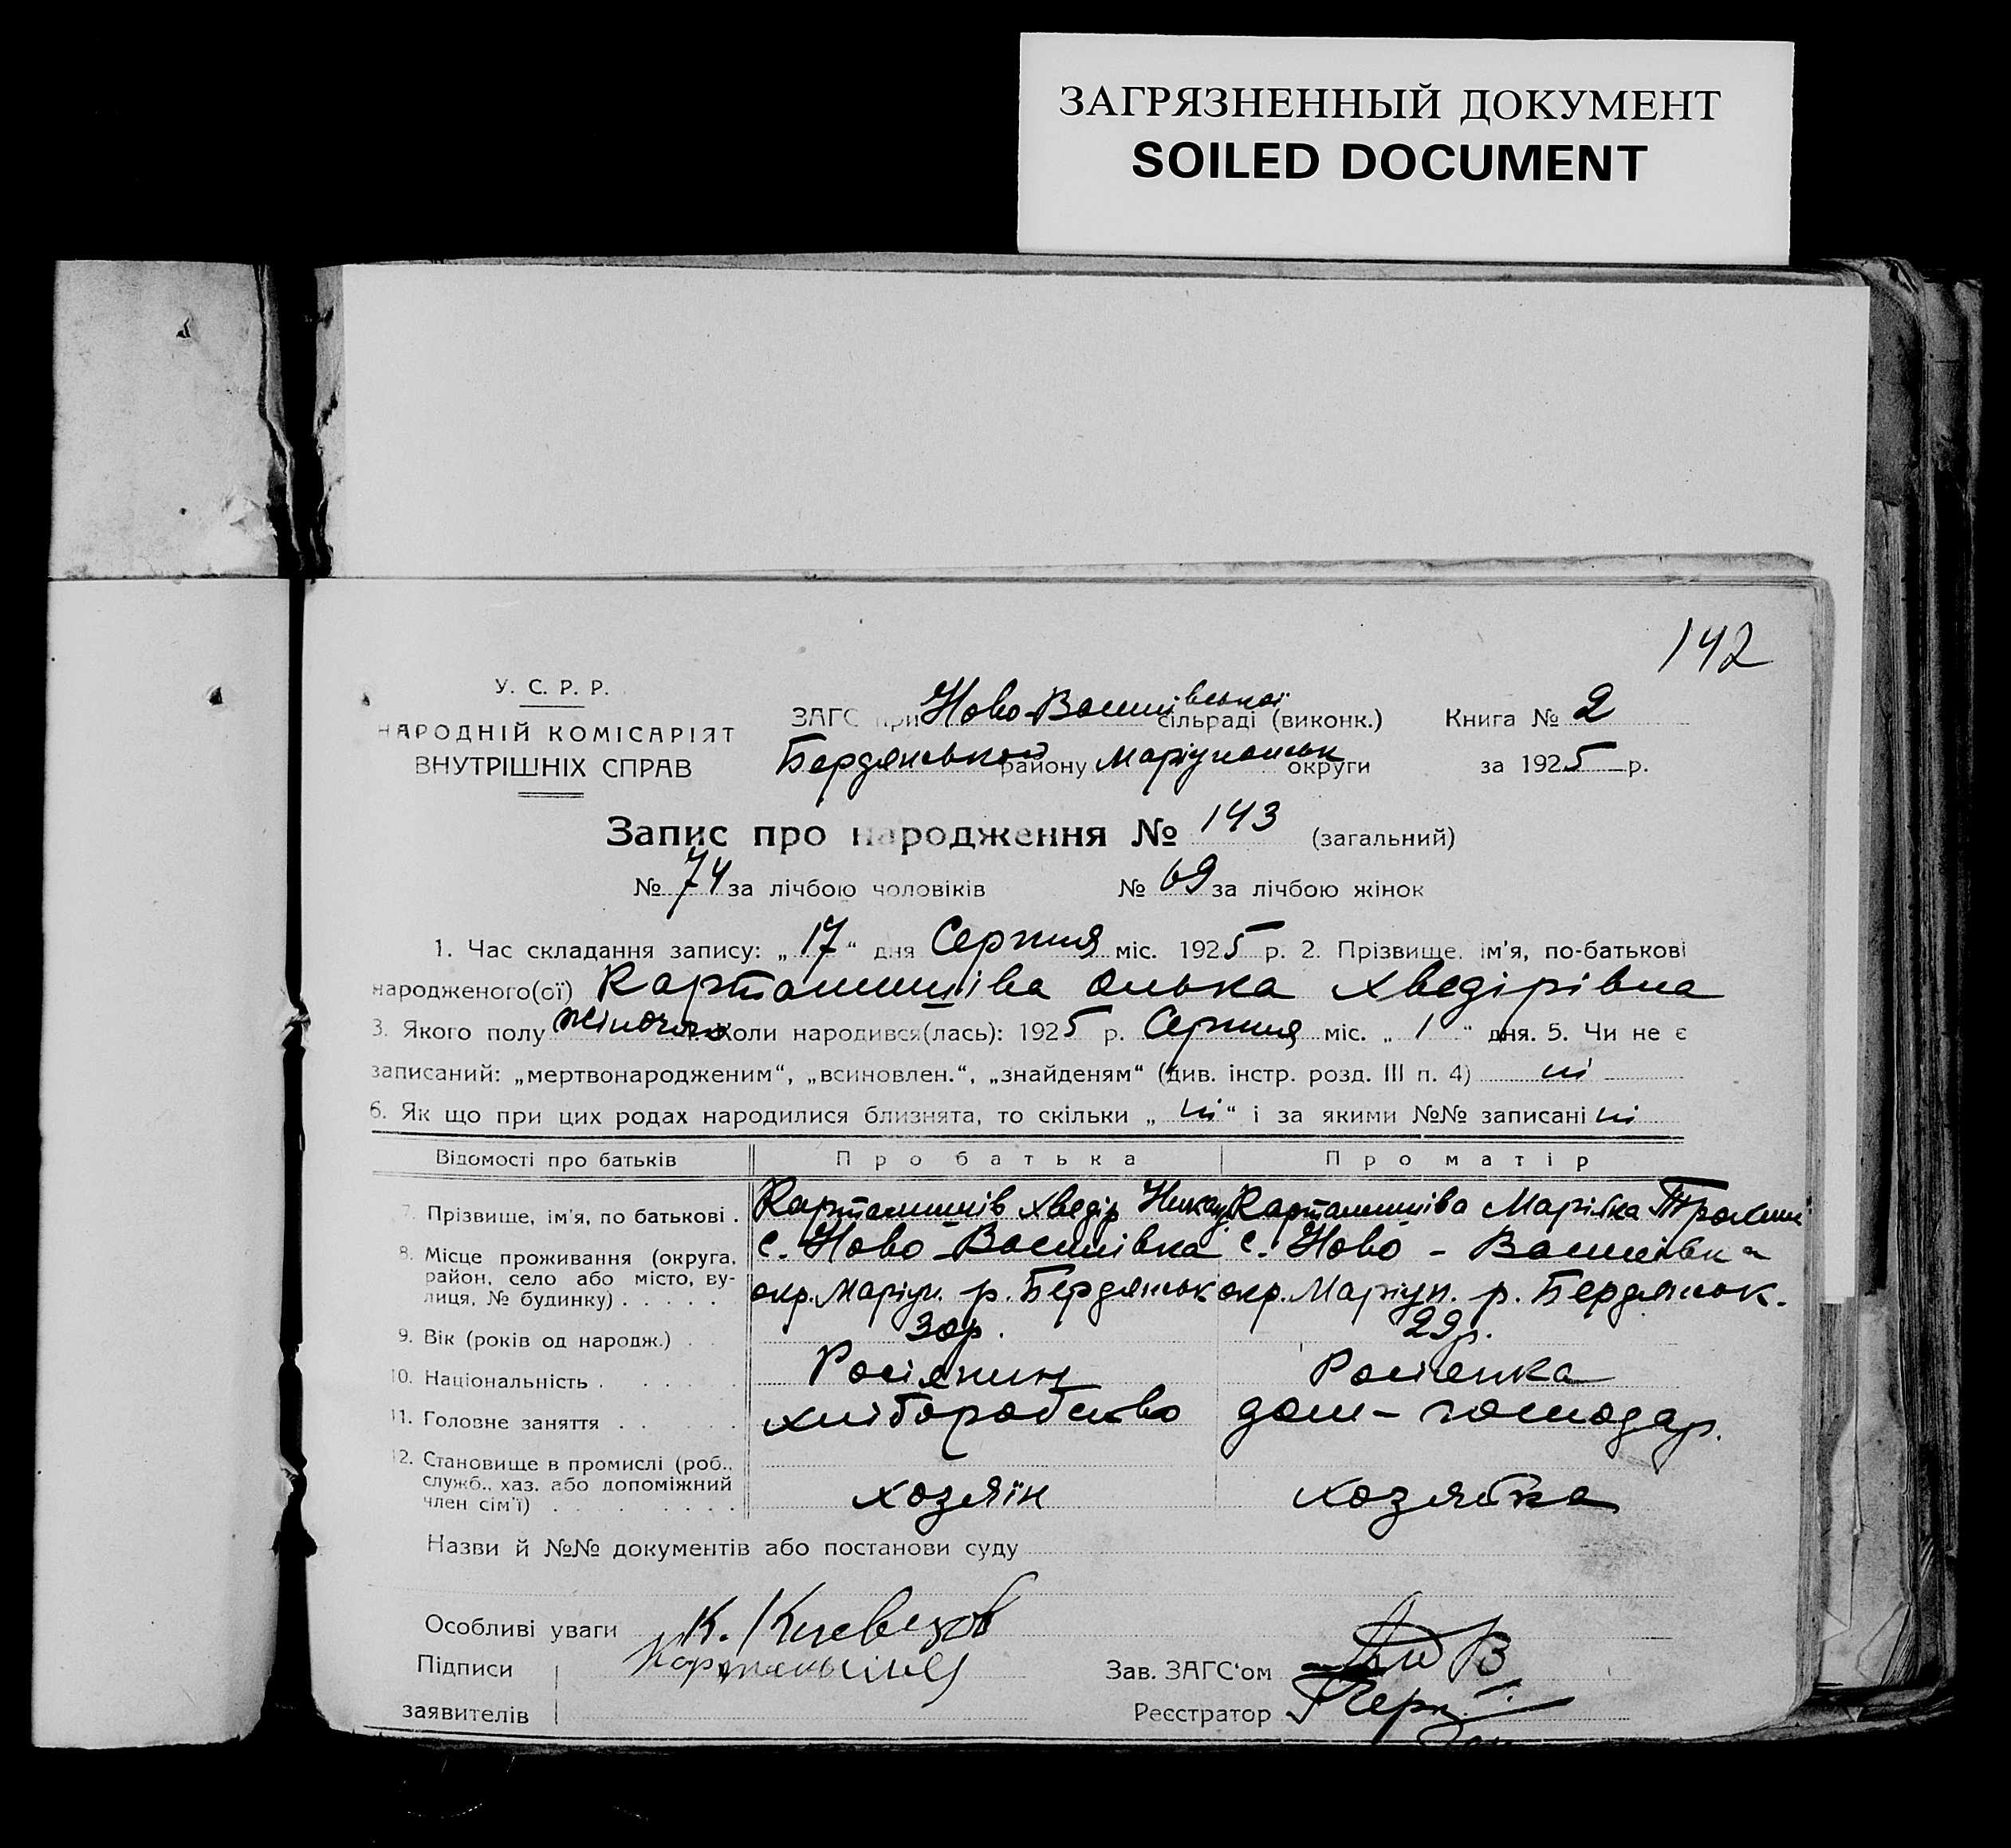 ЗАГРЯЗНЕННЫЙ ДОКУМЕНТ
SOILED DOCUMENT
142
У. С. Р. Р.
НАРОДНІЙ КОМІСАРІЯТ
ВНУТРІШНІХ СПРАВ
ЗАГС при Ново-Василівської сільраді (виконк.) Книга № 2
Бердянський району Маріупольськ округи за 1925 р.
Запис про народження № 143 (загальний)
№ 74 за лічбою чоловіків № 69 за лічбою жінок
1. Час складання запису: „17“ дня Серпня міс. 1925 р. 2. Прізвище, ім'я, по-батькові
народженого(ої) Карташшіва Олька Хведірівна
3. Якого полу жіночого Коли народився(лась): 1925 р. Серпня міс. „1“ дня. 5. Чи не є
записаний: „мертвонародженим“, „всиновлен.“, „знайденям“ (див. інстр. розд. III п. 4) ні
6. Як що при цих родах народилися близнята, то скільки „ні“ і за якими №№ записані ні
Відомості про батьків Про батька Про матір
7. Прізвище, ім'я, по батькові . Хведір Марійка
8. Місце проживання (округа, район, село або місто, вулиця, № будинку) . . . . .
с. Ново-Василівка с. Ново-Василівка
окр. Маріуп. р. Бердянськ окр. Маріуп. р. Бердянськ.
9. Вік (років од народж.) . . 30р. 29р.
10. Національність . . . . . Росіянин Росіянка
11. Головне заняття . . . . . хліборобство дом-господар.
12. Становище в промислі (роб., служб., хаз. або допоміжний член сім'ї) . . . . . хозяїн хозяйка
Назви й №№ документів або постанови суду
Особливі уваги
Підписи
заявителів
Зав. ЗАГС'ом
Реєстратор